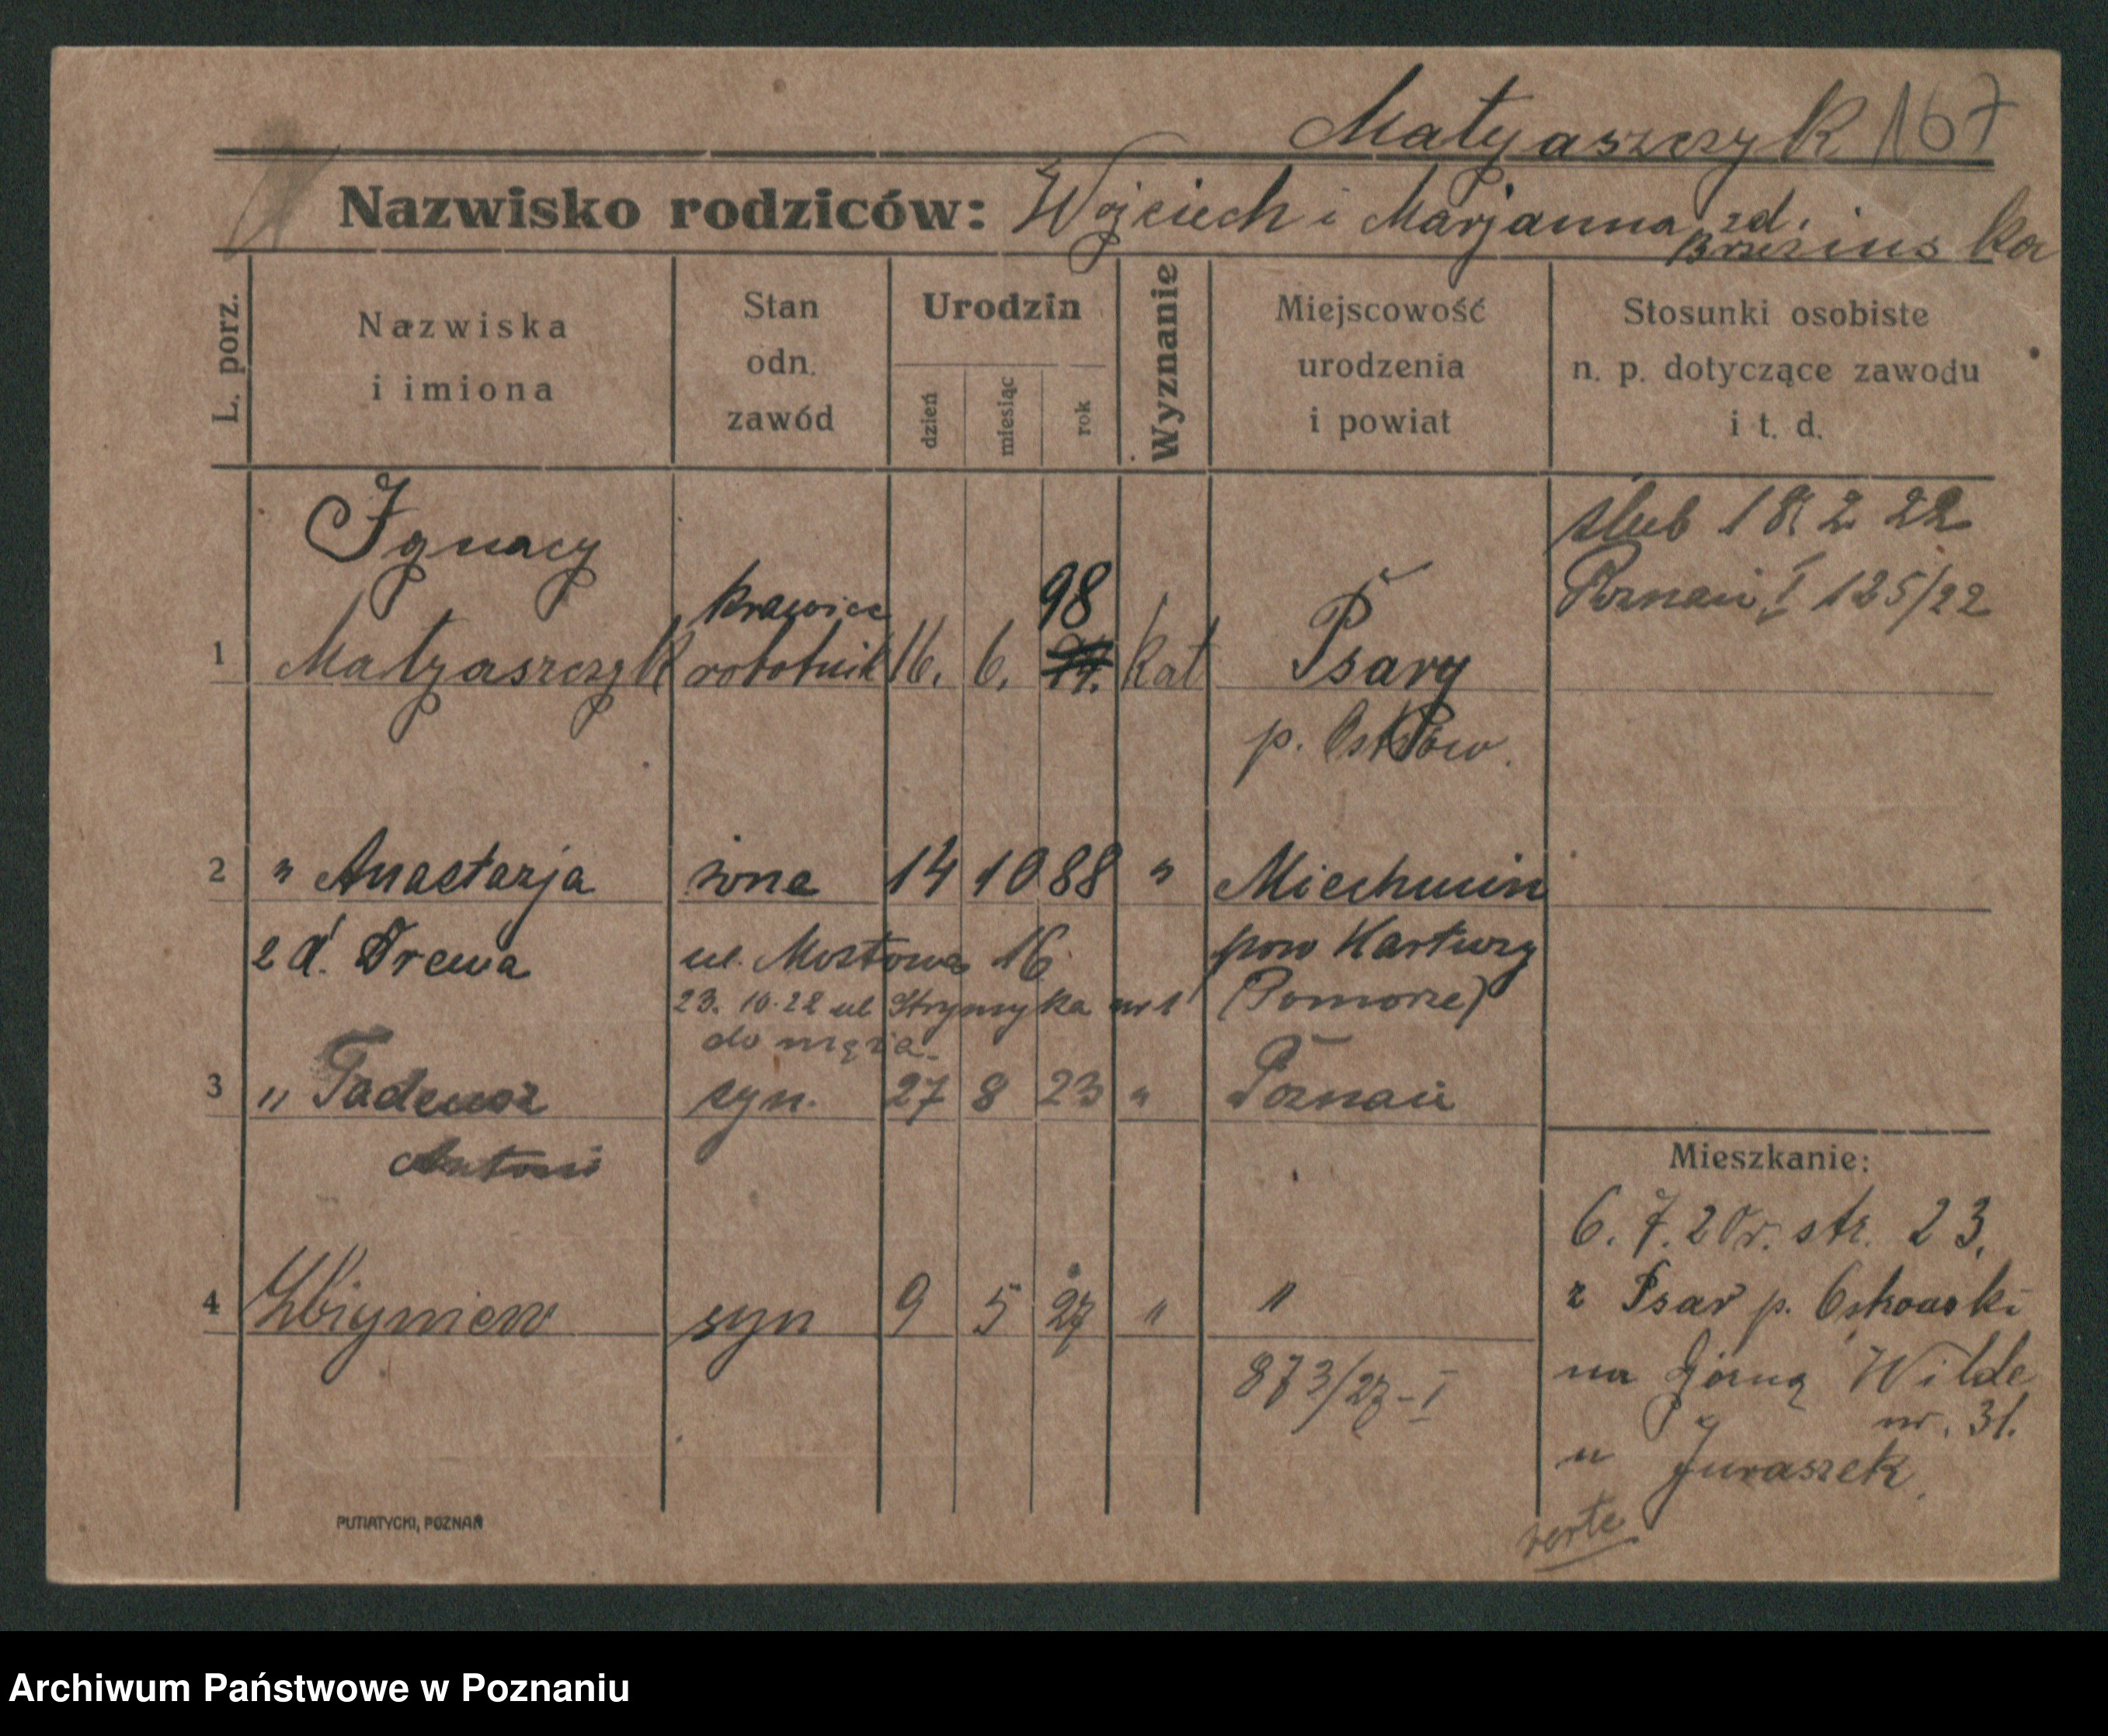 Matyaszczyk 167
Nazwisko rodziców: Wojciech i Marjanna zd. Brzezinska
L. porz.
Nazwiska
i imiona
Stan
odn.
zawód
Urodzin
dzień
miesiąc
rok
Wyznanie
Miejscowość
urodzenia
i powiat
Stosunki osobiste
n. p. dotyczące zawodu
i t. d.
ślub 18. 2 22
Poznań I 125/22
Ignacy
krawiec 98
1 Matyaszczyk robotnik 16. 6. kat Psary
p. Ostrów.
2 " Anastazja żona 14 10 88 " Miechucin
z d. Drewa ul. Mostowa 16 pow Kartuzy
23. 10. 22 ul nr 1 (Pomorze)
do męża
3 " Tadeusz syn. 27 8 23 " Poznań
Antoni
4 Zbigniew syn 9 5 27 " "
873/27-I
Mieszkanie:
6. 7. 20r. str. 23.
z Psar p. Ostrowski
na Górną Wildę
nr. 31.
u Juraszek
verte
PUTIATYCKI, POZNAŃ
Archiwum Państwowe w Poznaniu